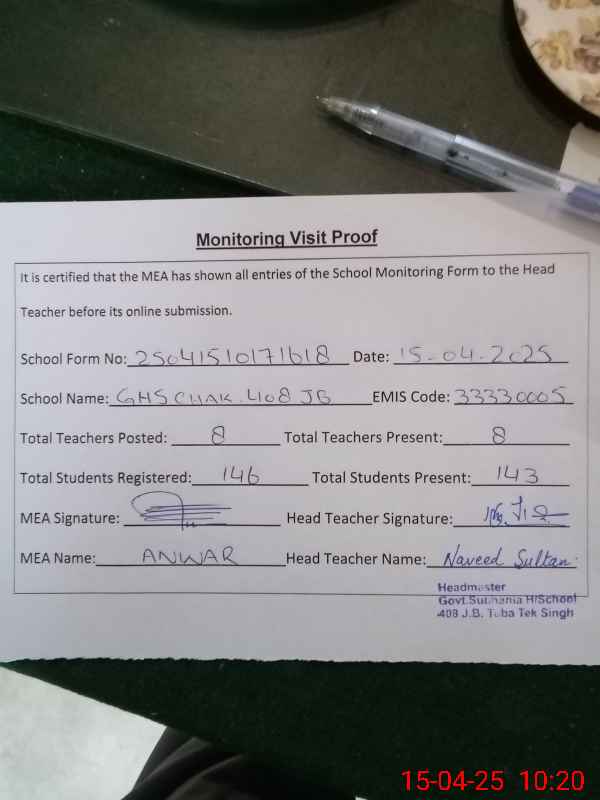 Monitoring Visit Proof
It is certified that the MEA has shown all entries of the School Monitoring Form to the Head
Teacher before its online submission.
School Form No: 25041510171618 Date: 15-04-2025
School Name: GHS CHAK.408 JB EMIS Code: 33330005
Total Teachers Posted: 8 Total Teachers Present: 8
Total Students Registered: 146 Total Students Present: 143
MEA Signature: Head Teacher Signature:
MEA Name: ANWAR Head Teacher Name: Naveed Sultan.
Headmaster
Govt.Subhania H/School
408 J.B. Toba Tek Singh
15-04-25 10:20